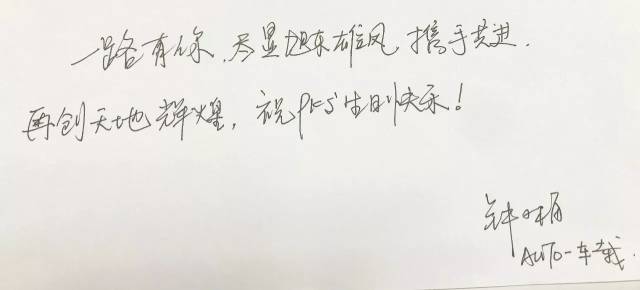 一路有你,尽显旭东雄风,携手共进.
再创天地辉煌,祝PES生日快乐!
钟
AUTO-车载.